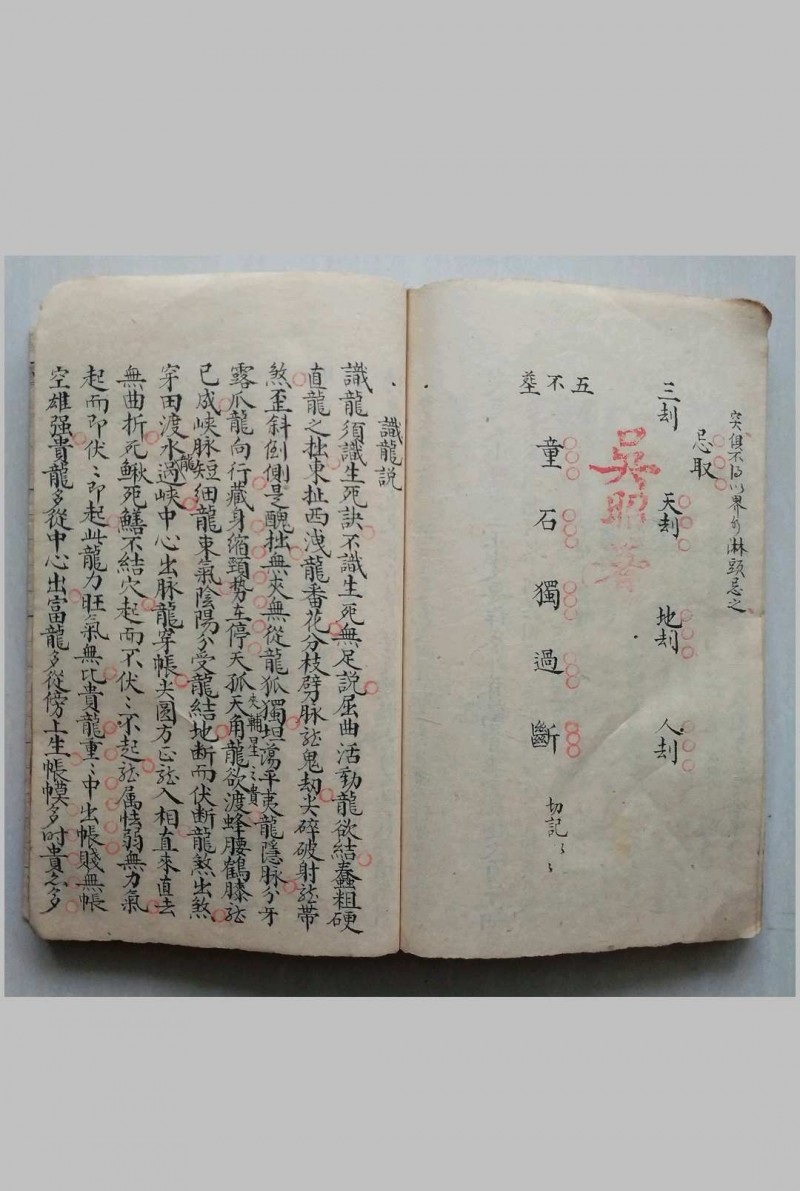 突俱不淋頭忌之
忌取
三刦 天刦 地刦 人刦
吴昭著
五不塟
童石獨過斷 切記〻〻
識龍説
識龍須識生死訣不識生死無足説屈曲活動龍欲結蠢粗硬
直龍之拙東扯西洩龍番花分枝劈脉龍鬼刼尖碎破射龍帶
煞歪斜倒側是醜拙無夾無從龍孤獨坦蕩平夷龍隱脉分牙
露爪龍向行藏身縮頸勢在停天孤天角龍欲渡蜂腰鶴膝龍
夾輔星〻貴
已成峽脉短細龍束氣陰陽分受龍結地断而伏断龍煞出煞
穿田渡水龍過峽中心出脉龍穿帳尖圓方正龍入相直來直去
無曲折死鰍死鱔不結穴起而不伏〻不起龍属怯弱無力氣
起而即伏〻即起此龍力旺氣無比貴龍重〻中出帳賤無帳
空雄强貴龍多從中心出富龍多從傍上生帳幙多時貴亦多